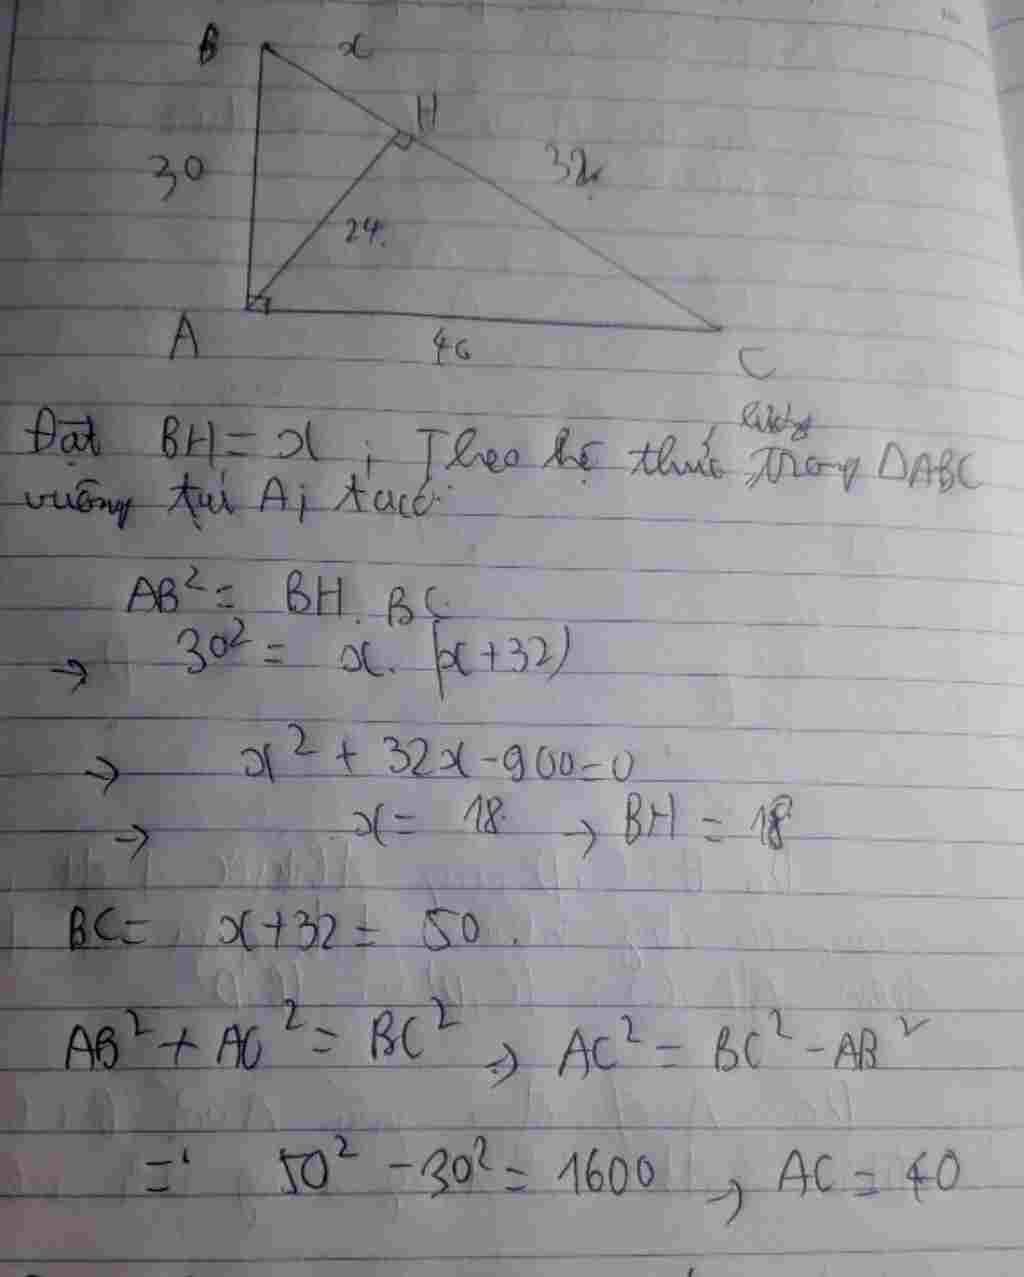 B x
H
30
32
24.
A
40
C
Đặt BH = x ; Theo hệ thức lượng trong ΔABC
vuông tại A; ta có:
AB² = BH. BC
→ 30² = x. (x+32)
→ x² + 32x - 900 = 0
→ x = 18 → BH = 18
BC = x+32 = 50.
AB² + AC² = BC² → AC² = BC² - AB²
= 50² - 30² = 1600 → AC = 40